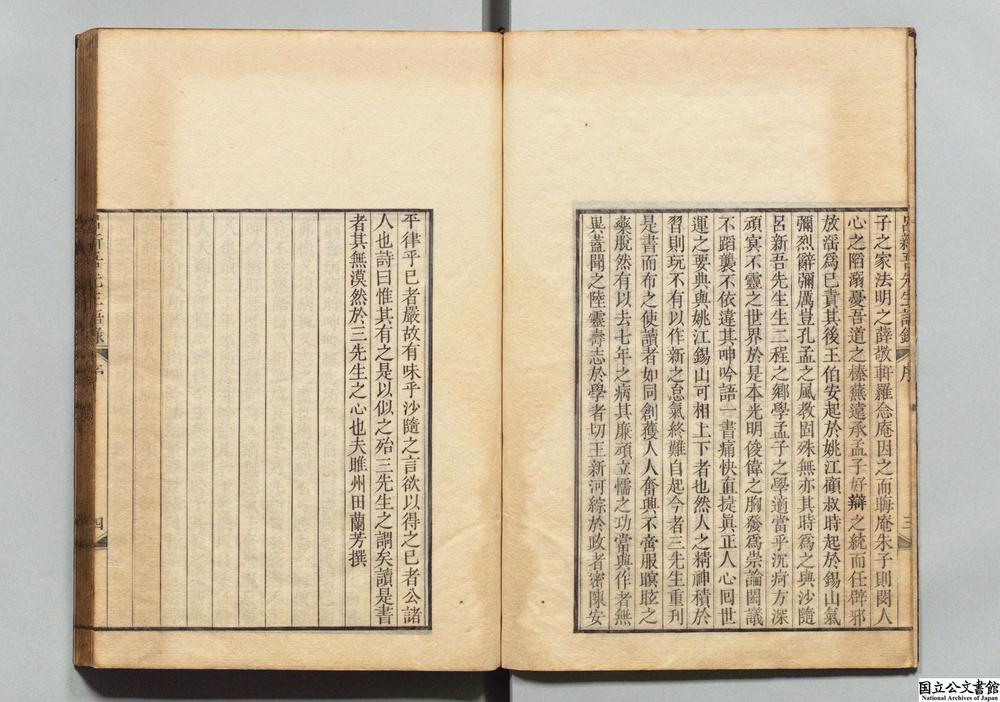 呂新吾先生語錄 序 三
子之家法明之薛敬軒羅念庵因之而晦庵朱子則閔人
心之陷溺憂吾道之榛蕪遠承孟子好辯之統而任闢邪
放淫爲已責其後王伯安起於姚江顧叔時起於錫山氣
彌烈辭彌厲豈孔孟之風敎固殊無亦其時爲之與沙隨
呂新吾先生生二程之鄉學孟子之學適當乎沉痾方深
頑冥不靈之世界於是本光明俊偉之胸發爲崇論閎議
不蹈襲不依違其呻吟語一書痛快直捷眞正人心囘世
運之要典與姚江錫山可相上下者也然人之精神積於
習則玩不有以作新之怠氣終難自起今者三先生重刋
是書而布之使讀者如同創獲人人奮興不啻服瞑眩之
藥脫然有以去七年之病其廉頑立懦之功當與作者無
異葢聞之陸靈壽志於學者切王新河綜於政者密陳安
平律乎已者嚴故有味乎沙隨之言欲以得之已者公諸
人也詩曰惟其有之是以似之殆三先生之謂矣讀是書
者其無漠然於三先生之心也夫睢州田蘭芳撰
呂新吾先生語錄 序 四
国立公文書館
National Archives of Japan